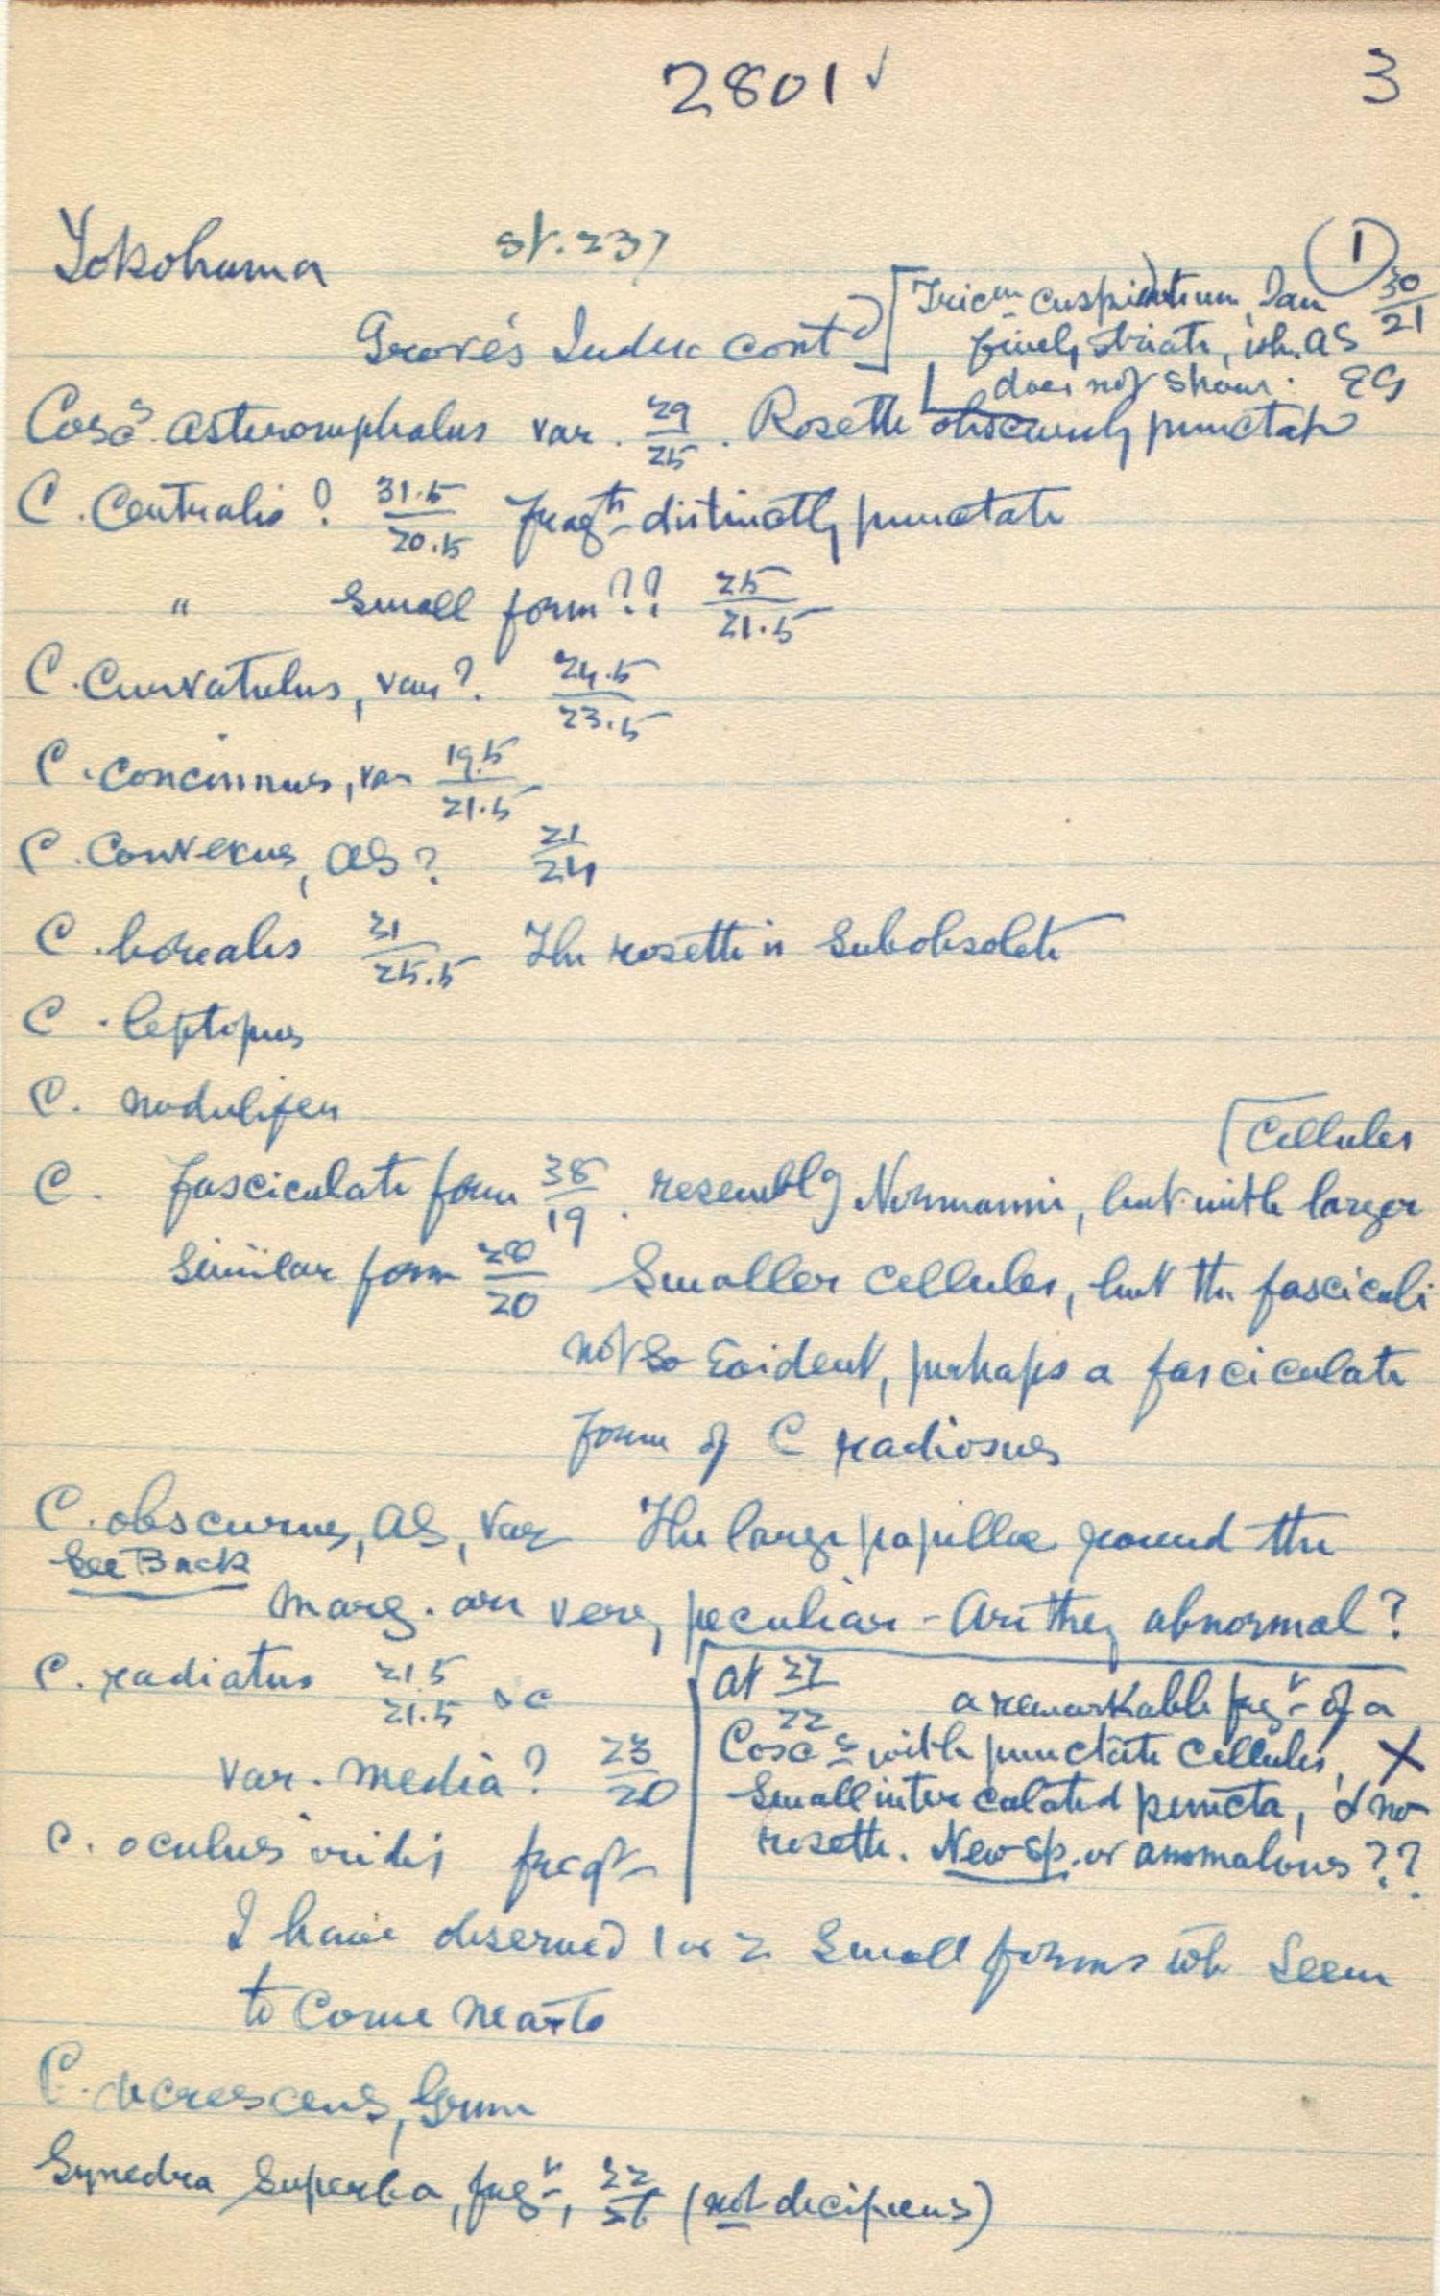 2801✓ 3
Yokohama St. 237 ①
Grove's Index cont
Tricm cuspidatum, Jan 30/21
finely striate, wh. AS
does not show. EG
Coscs asteromphalus var. 29/25. Rosette obscurely punctate
C. Centralis? 31.5/20.5 fragt distinctly punctate
" Small form?? 25/21.5
C. Curvatulus, var? 24.5/23.5
C. Concinnus, var 19.5/21.5
C. Convexus, AS? 21/24
C. borealis 31/25.5 The rosette is Subobsolete
C. leptopus
C. nodulifer
[Cellules
C. fasciculate form 38/19. resemblg Normanni, but with larger
Similar form 28/20 Smaller cellules, but the fasciculi
not so Evident, perhaps a fasciculate
form of C radiosus
C. obscurus, AS, Var The large papillae round the
See Back
marg. are very peculiar - Are they abnormal?
C. radiatus 21.5/21.5 &c
var. media? 23/20
At 27/22 a remarkable fragt of a
Coscs with punctate cellules, X
Small intercalated puncta, & no
rosette. New sp. or anomalous??
C. oculus iridis fragt
I have observed 1 or 2 Small forms wh Seem
to Come near to
C. decrescens, Grun
Synedra Superba, fragt, (not decipiens)